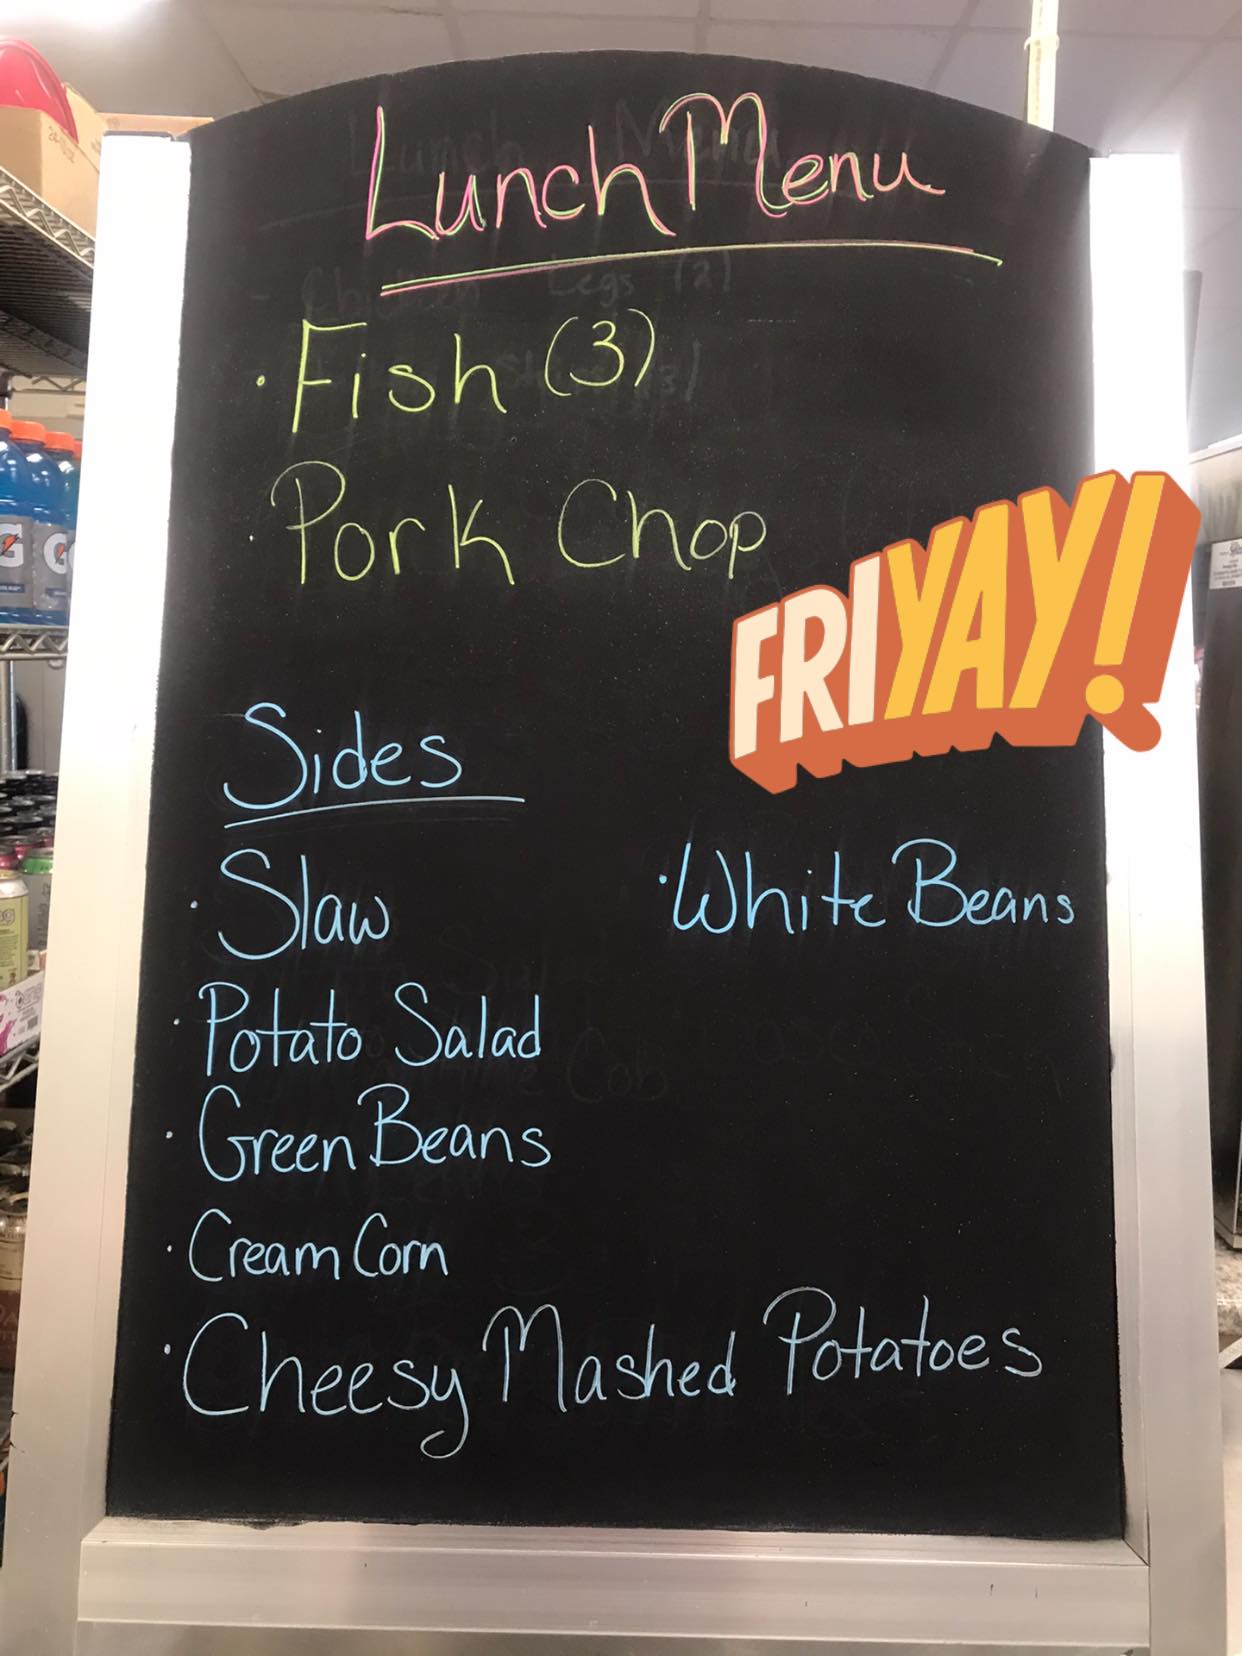 Lunch Menu
· Fish (3)
· Pork Chop
FRIYAY!
Sides
· Slaw
· White Beans
· Potato Salad
· Green Beans
· Cream Corn
· Cheesy Mashed Potatoes
G
G